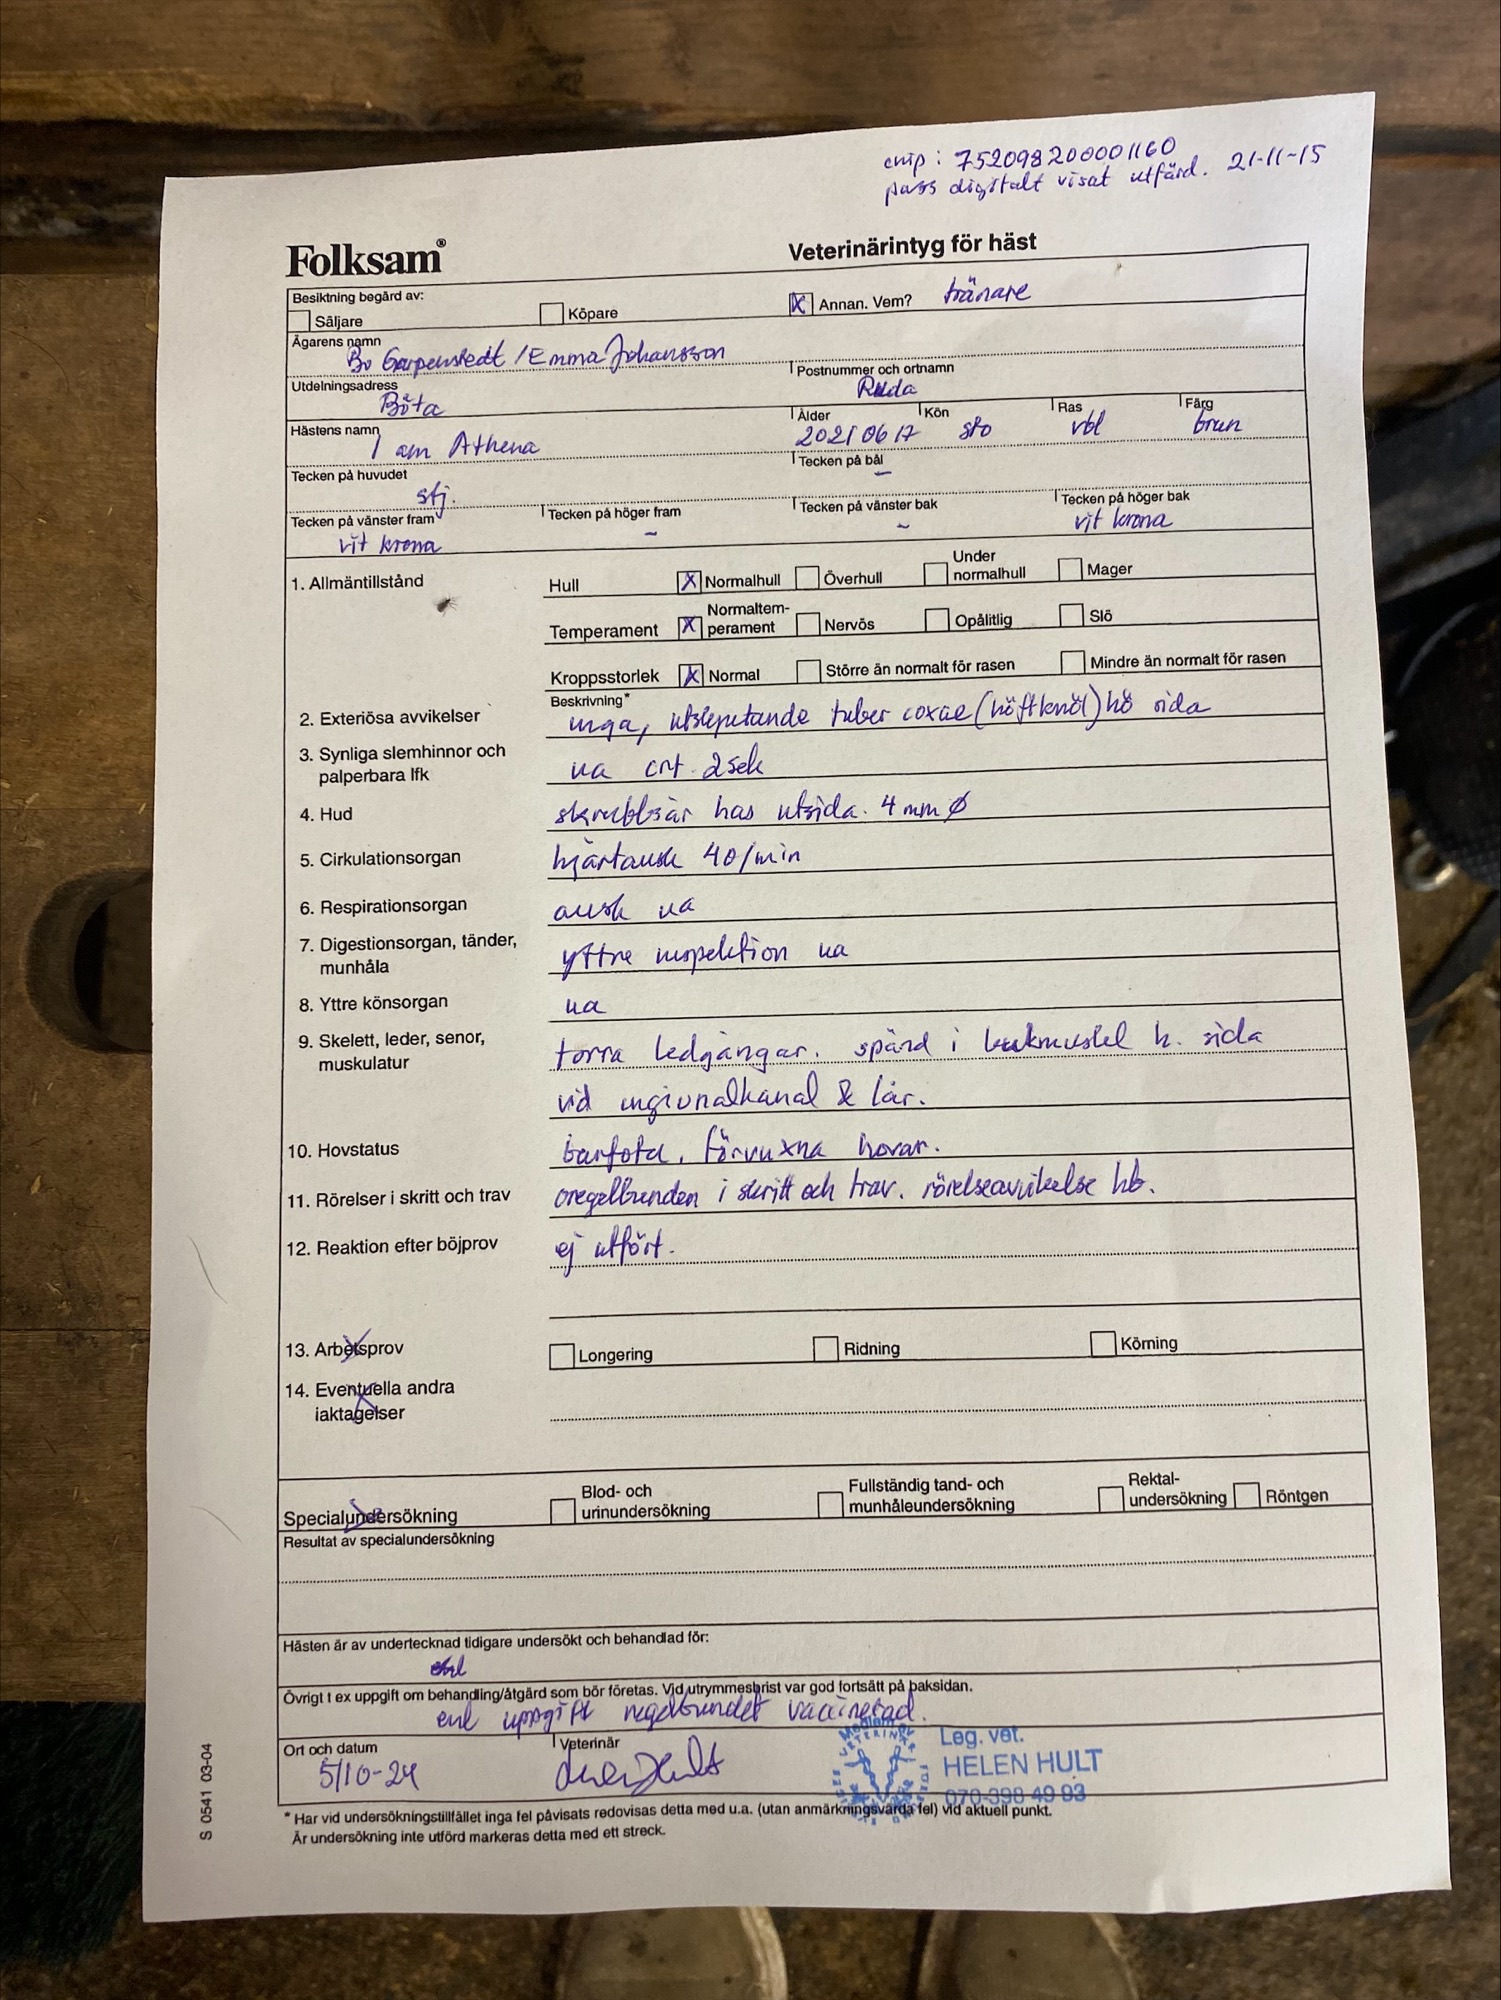 chip: 752098200001160
pass digitalt visat utfärd. 21-11-15
Folksam®
Veterinärintyg för häst
Besiktning begärd av:
Säljare Köpare X Annan. Vem? tränare
Ägarens namn
Bo Garpenstedt / Emma Johansson
Utdelningsadress Postnummer och ortnamn
Böta Ruda
Hästens namn Ålder Kön Ras Färg
I am Athena 20210617 sto vbl brun
Tecken på huvudet Tecken på bål
stj. –
Tecken på vänster fram Tecken på höger fram Tecken på vänster bak Tecken på höger bak
vit krona – – vit krona
1. Allmäntillstånd Hull X Normalhull Överhull Under normalhull Mager
Temperament X Normaltem-perament Nervös Opålitlig Slö
Kroppsstorlek X Normal Större än normalt för rasen Mindre än normalt för rasen
Beskrivning*
2. Exteriösa avvikelser inga, utslputande tuber coxae (höftknöl) hö sida
3. Synliga slemhinnor och
palperbara lfk ua crt. 2sek
4. Hud skrubbsår has utsida. 4 mm Ø
5. Cirkulationsorgan hjärtausk 40/min
6. Respirationsorgan ausk ua
7. Digestionsorgan, tänder,
munhåla yttre inspektion ua
8. Yttre könsorgan ua
9. Skelett, leder, senor,
muskulatur torra ledgångar. spänd i bukmuskel h. sida
vid ingionalkanal & lår.
10. Hovstatus barfota. förvuxna hovar.
11. Rörelser i skritt och trav oregelbunden i skritt och trav. rörelseavvikelse hb.
12. Reaktion efter böjprov ej utfört.
13. Arbetsprov Longering Ridning Körning
14. Eventuella andra
iaktagelser
Specialundersökning Blod- och urinundersökning Fullständig tand- och munhåleundersökning Rektal-undersökning Röntgen
Resultat av specialundersökning
Hästen är av undertecknad tidigare undersökt och behandlad för:
Övrigt t ex uppgift om behandling/åtgärd som bör företas. Vid utrymmesbrist var god fortsätt på baksidan.
enl uppgift regelbundet vaccinerad.
Ort och datum Veterinär
5/10-24
Leg. vet.
HELEN HULT
070-398 49 93
* Har vid undersökningstillfället inga fel påvisats redovisas detta med u.a. (utan anmärkningsvärda fel) vid aktuell punkt.
Är undersökning inte utförd markeras detta med ett streck.
S 0541 03-04